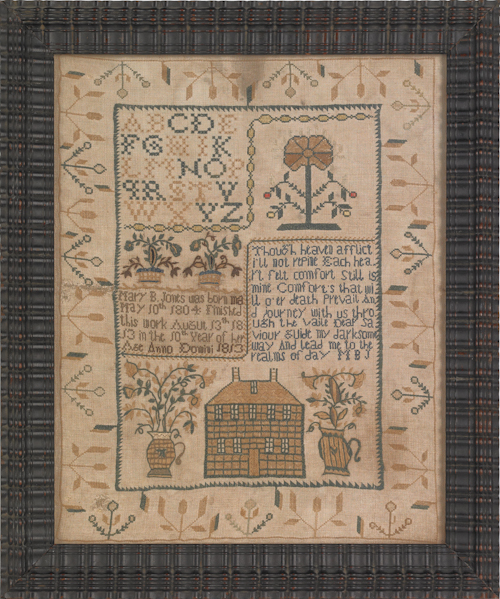 A B C D E
F G H I K
N O
R S T V
W X Y Z
Though heaven afflict
I'll not repine Each hea
rt felt comfort Still is
mine Comforts that wi
ll o'er death Prevail An
d Journey with us thro
ugh the Vaile Dear Sa
viour Guide my darksome
way And lead me to the
realms of day M B J
Mary B. Jones was born
May 10th 1804 Finished
this work August 13th 18
13 in the 10th Year of her
Age Anno Domini 1813